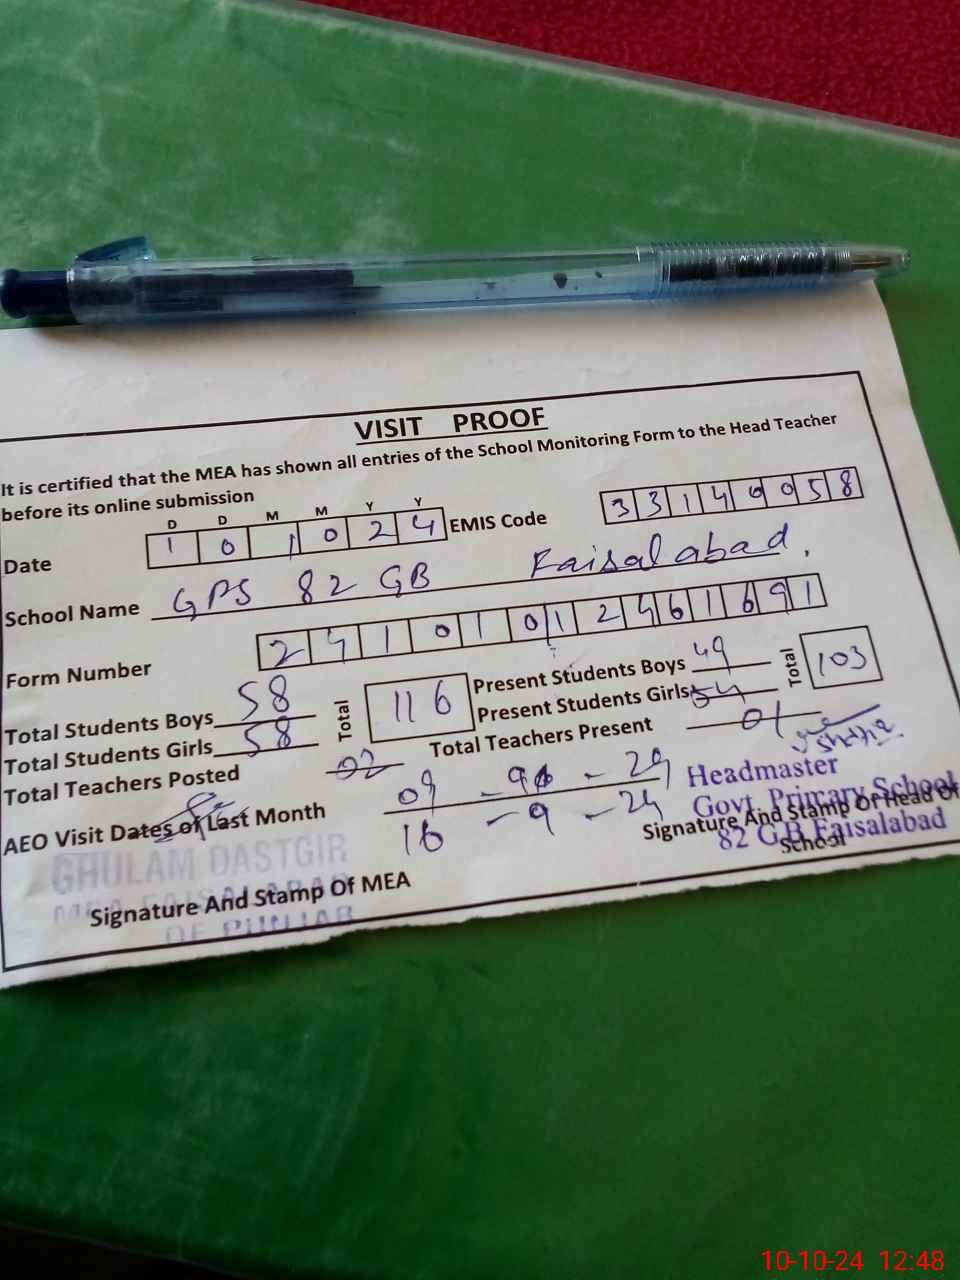 VISIT PROOF
It is certified that the MEA has shown all entries of the School Monitoring Form to the Head Teacher
before its online submission
D D M M Y Y
Date 1 0 1 0 2 4 EMIS Code 3 3 1 4 0 0 5 8
School Name GPS 82 GB Faisalabad.
Form Number 2 4 1 0 1 0 1 2 4 6 1 6 9 1
Total Students Boys 58 Total 116 Present Students Boys 49 Total 103
Total Students Girls 58 Present Students Girls 54
Total Teachers Posted 02 Total Teachers Present 01
AEO Visit Dates of Last Month 09 - - 24
16 - 9 - 24
Headmaster
Govt. Primary School
82 G.B Faisalabad
Signature And Stamp Of Head Of
School
GHULAM DASTGIR
MEA FAISALABAD
OF PUNJAB
Signature And Stamp Of MEA
10-10-24 12:48